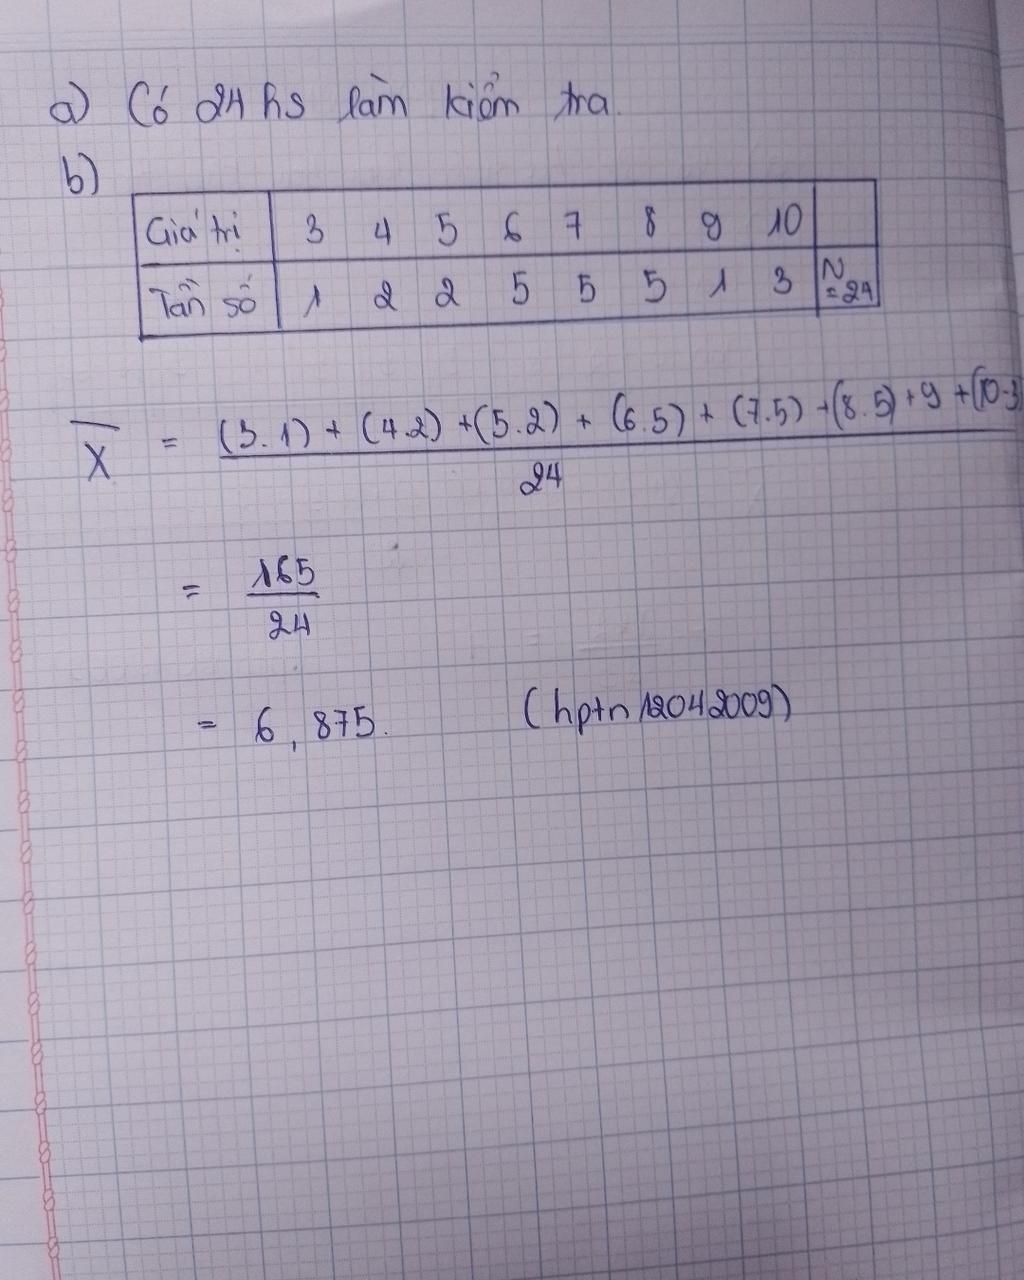 a) Có 24 hs làm kiểm tra.
b)
Giá trị 3 4 5 6 7 8 9 10
Tần số 1 2 2 5 5 5 1 3 N = 24
X̅ = (3.1) + (4.2) + (5.2) + (6.5) + (7.5) + (8.5) + 9 + (10.3)
24
= 165
24
= 6,875. (hptn12042009)